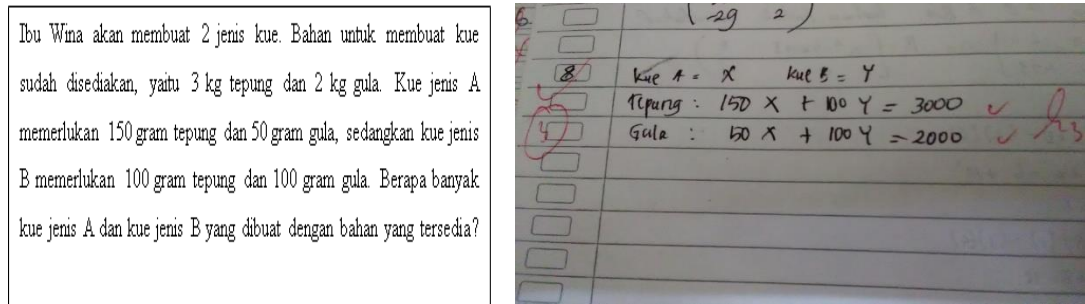 Ibu Wina akan membuat 2 jenis kue. Bahan untuk membuat kue
sudah disediakan, yaitu 3 kg tepung dan 2 kg gula. Kue jenis A
memerlukan 150 gram tepung dan 50 gram gula, sedangkan kue jenis
B memerlukan 100 gram tepung dan 100 gram gula. Berapa banyak
kue jenis A dan kue jenis B yang dibuat dengan bahan yang tersedia?
-29 2
8 Kue A = X Kue B = Y
Tepung : 150 X + 100 Y = 3000
4 Gula : 50 X + 100 Y = 2000